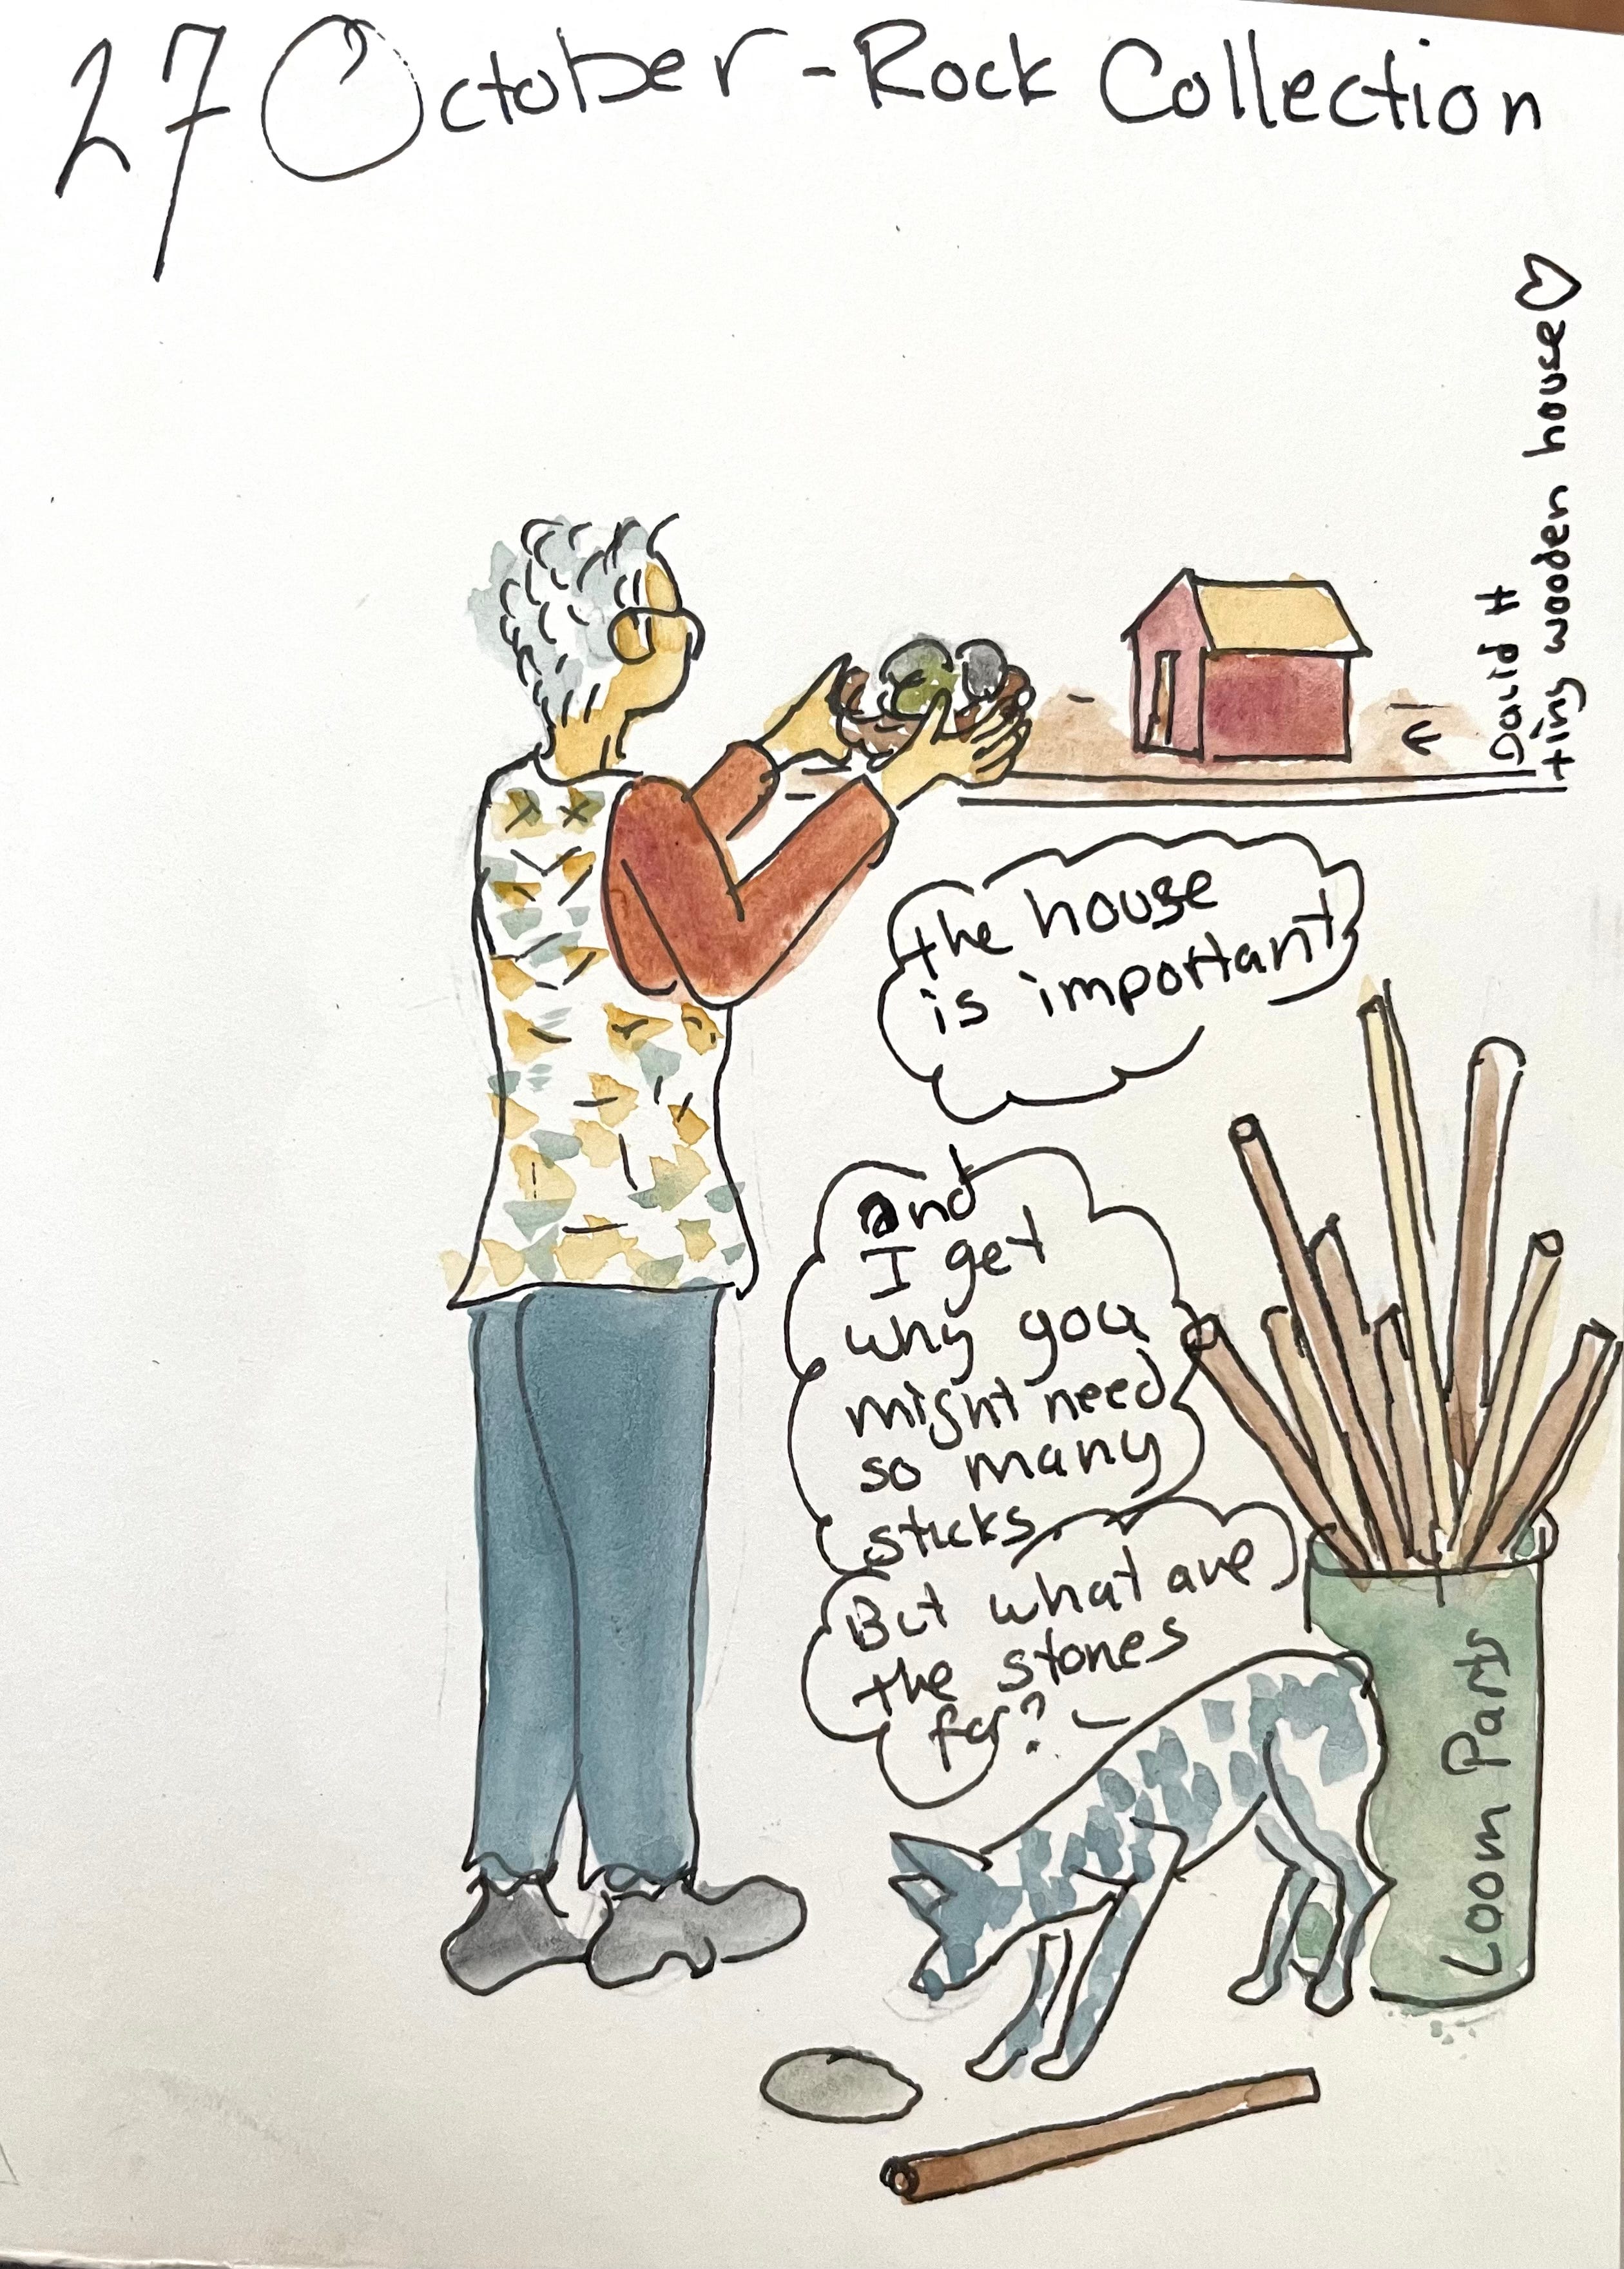 27 October - Rock Collection
David H
tiny wooden house ♡
the house
is important
and
I get
why you
might need
so many
sticks.
But what are
the stones
for?
Loom Parts